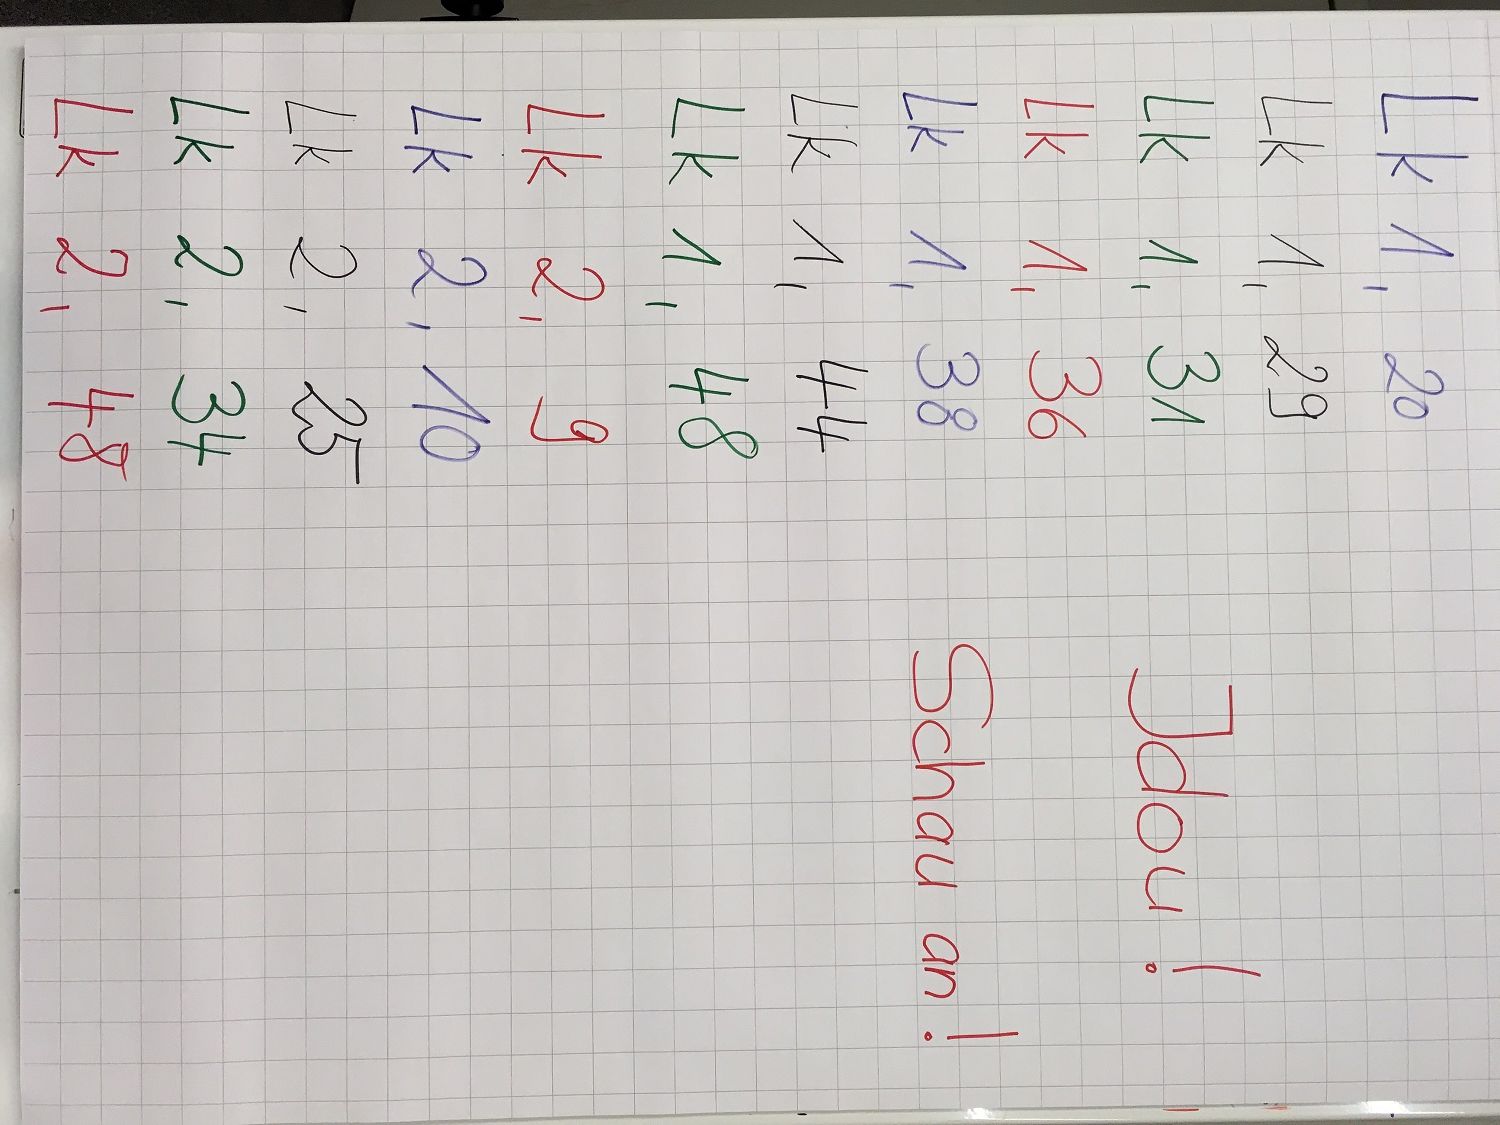 Lk 1, 20
Lk 1, 29
Lk 1, 31
Lk 1, 36
Lk 1, 38
Lk 1, 44
Lk 1, 48
Lk 2, 9
Lk 2, 10
Lk 2, 25
Lk 2, 34
Lk 2, 48
Idou!
Schau an!